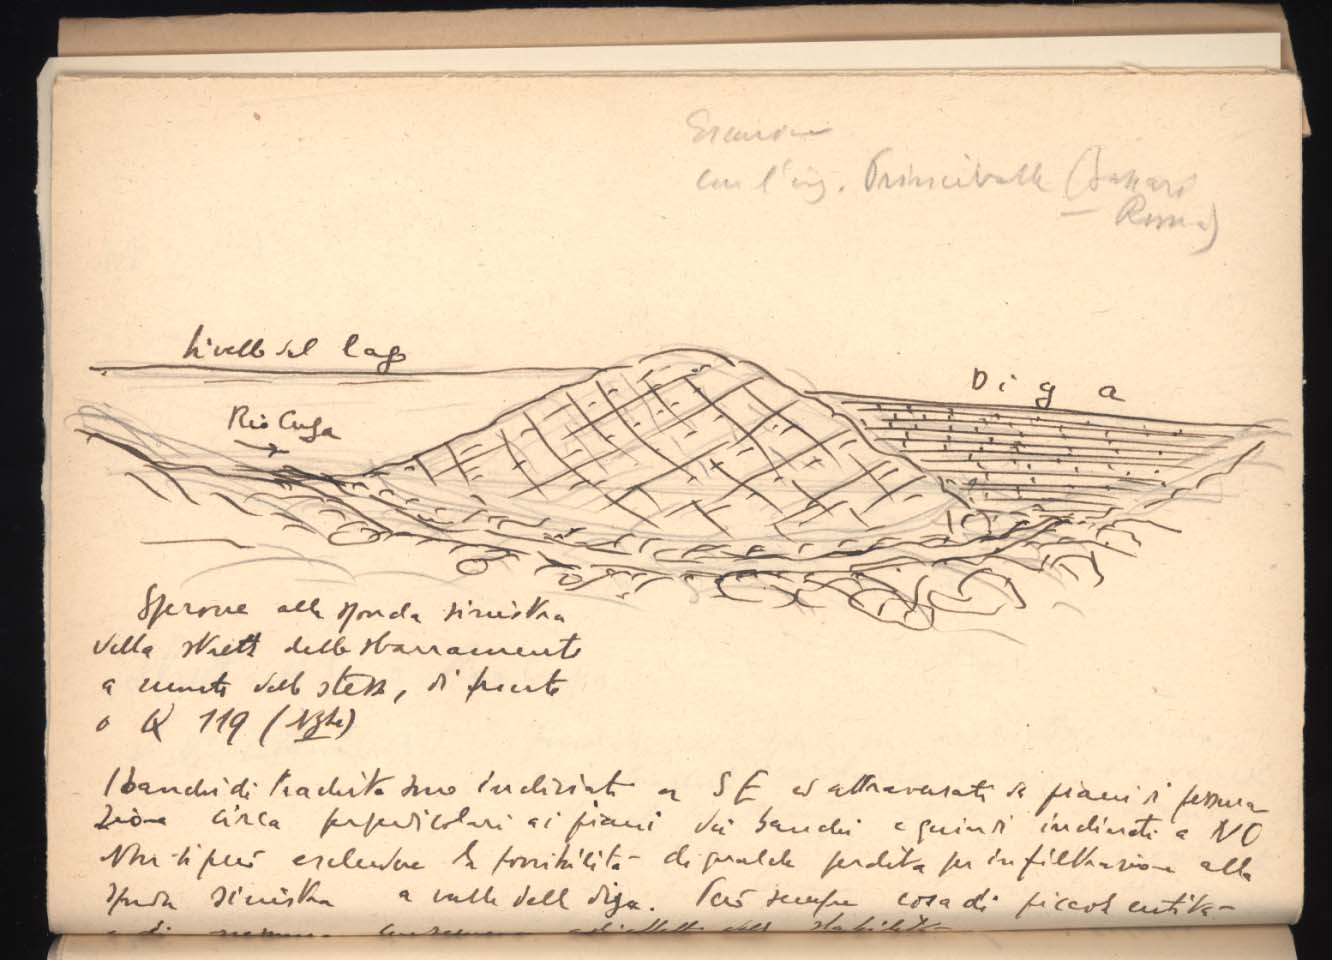 Escursione
con l'ing. Princivalle (Sassari
— Roma)
Livello del lago
Diga
Rio Cuga
Sperone alla sponda sinistra
della stretta dello sbarramento
a monte dello stesso, di fronte
a Q 119 (Nghe)
I banchi di trachite sono inclinati a SE ed attraversati da piani di fessura-
zione circa perpendicolari ai piani dei banchi e quindi inclinati a NO
Non si può escludere la possibilità di qualche perdita per infiltrazione alla
sponda sinistra a valle della diga. Però sempre cosa di piccola entità
e di nessuna